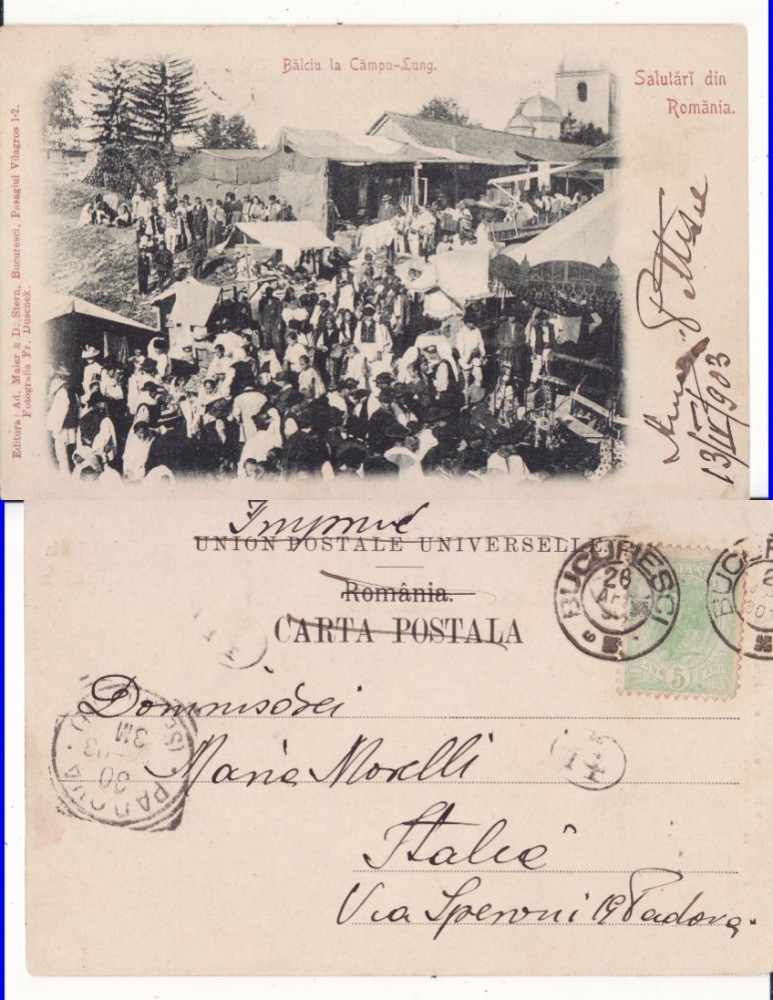 Bâlciu la Câmpu-Lung.
Salutări din
România.
Editura: Ad. Maier & D. Stern, Bucuresci, Pasagiul Vilagros 1-2.
Fotografia Fr. Duschek.
13/IV 903
Imprimé
UNION POSTALE UNIVERSELLE.
România.
CARTA POSTALA
BUCURESCI
26
5
BUCU
Domnisórei
Maria Morelli
Italia
Via Speroni 19 Padova
PADOVA
30
3M